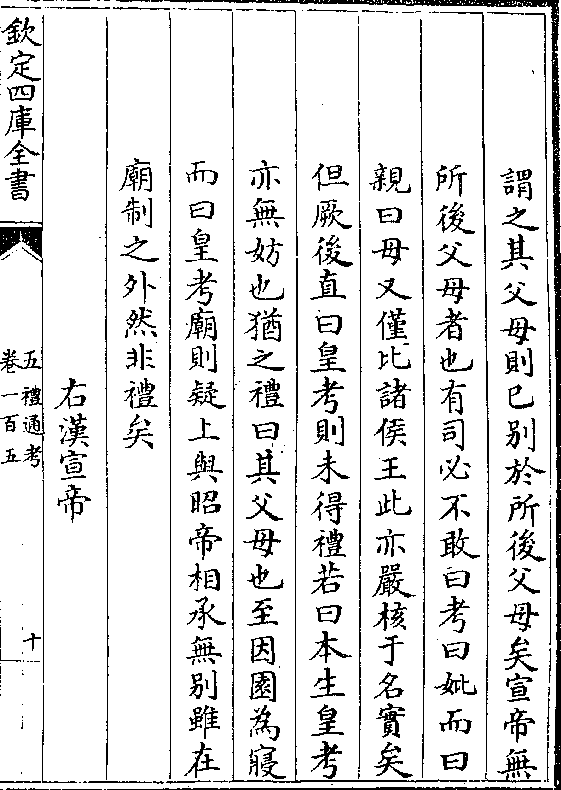 謂之其父母則已别於所後父母矣宣帝無
所後父母者也有司必不敢曰考曰妣而曰
親曰母又僅比諸侯王此亦嚴核于名實矣
但厥後直曰皇考則未得禮若曰本生皇考
亦無妨也猶之禮曰其父母也至因園為寢
而曰皇考廟則疑上與昭帝相承無别雖在
廟制之外然非禮矣
右漢宣帝
欽定四庫全書
五禮通考
卷一百五
十